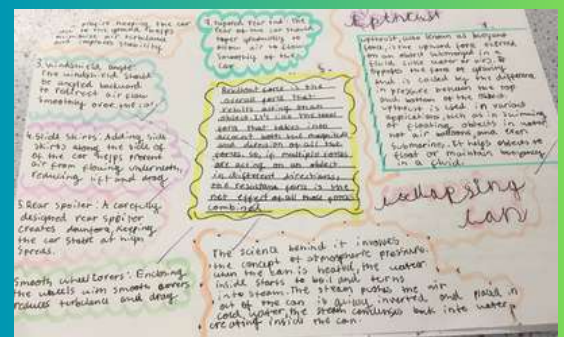 keeping the car
to the ground, helps
minimize air turbulence
and improves stability
3. Windshield angle:
the windshield should
be angled backward
to redirect air flow
smoothly over the car.
4. Side skirts: Adding side
skirts along the side of
of the car helps prevent
air from flowing underneath,
reducing lift and drag
5. Rear spoiler: A carefully
designed rear spoiler
creates downforce, keeping
the car stable at high
speeds.
Smooth wheel covers: Enclosing
the wheels with smooth covers
reduces turbulence and drag.
tapered rear end: the
rear of the car should
taper gradually to
allow air to flow
smoothly of the
car.
Resultant force is the
overall force that
results acting on an
object. It's like the total
force that takes into
account both the magnitude
and direction of all the
forces. so, if multiple forces
are acting on an object
in different directions,
the resultant force is the
net effect of all those forces
combined.
Upthrust
upthrust, also known as buoyant
force, is the upward force exerted
on an object submerged in a
fluid (like water or air). It
opposes the force of gravity
and is caused by the difference
in pressure between the top
and bottom of the object.
upthrust is used in various
applications, such as in swimming
or floating objects in water,
hot air balloons, and even
submarines. It helps objects to
float or maintain buoyancy
in a fluid.
collapsing
can
The science behind it involves
the concept of atmospheric pressure.
when the can is heated, the water
inside starts to boil and turns
into steam. The steam pushes the air
out of the can is quickly inverted and placed in
cold water, the steam condenses back into water,
creating inside the can.